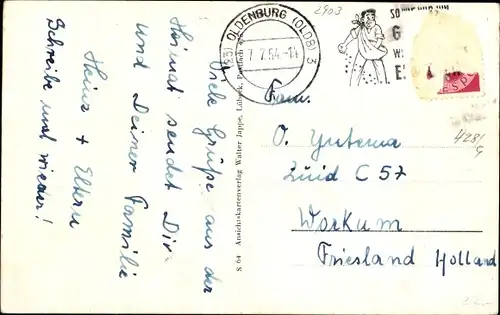 Viele Grüße aus der
Heimat sendet Dir
und Deiner Familie
Heinz + Eltern
Schreibe mal wieder!
S 64 Ansichtskartenverlag Walter Jappe, Lübeck, Postfach
(23) OLDENBURG (OLDB) 3
7.7.54-14
2903
SO
G
W
E
Fam.
O. Yntema
Zuid C 57
Workum
Friesland Holland
428/
9